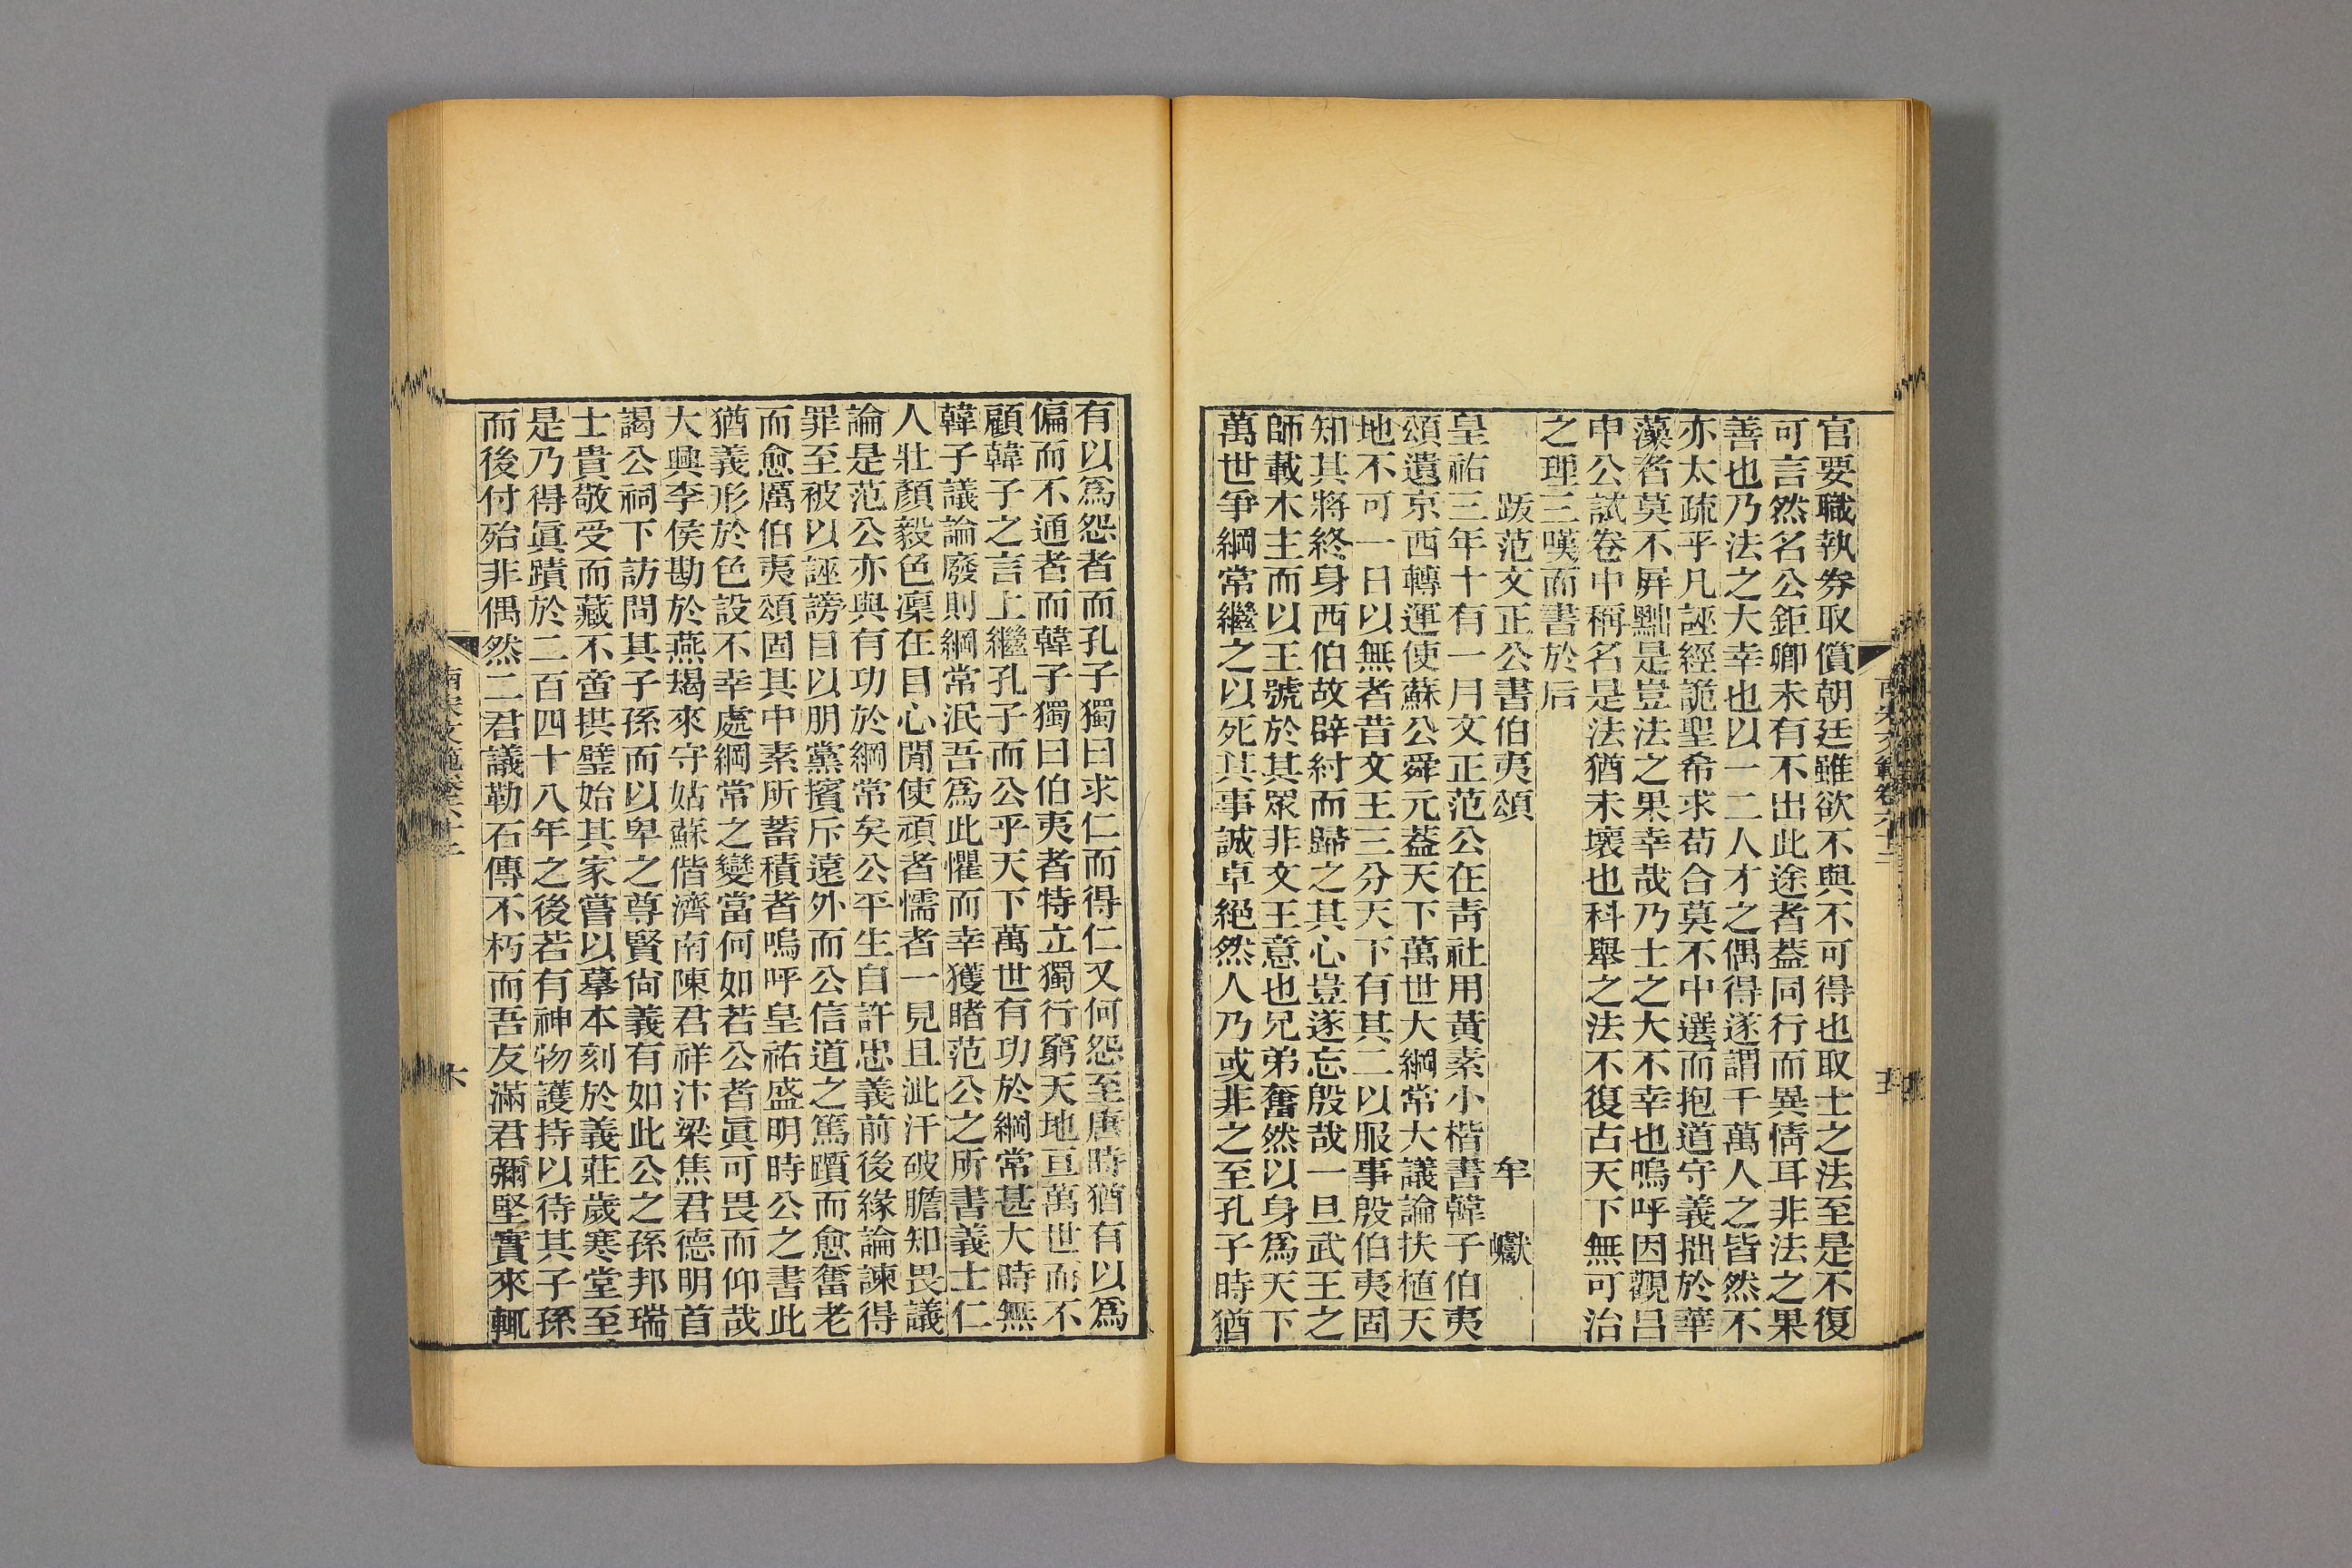 官要職執券取償朝廷雖欲不與不可得也取士之法至是不復
可言然名公鉅卿未有不出此途者蓋同行而異情耳非法之果
善也乃法之大幸也以一二人才之偶得遂謂千萬人之皆然不
亦太疏乎凡誣經詭聖希求苟合莫不中選而抱道守義拙於華
藻者莫不屏黜是豈法之果幸哉乃士之大不幸也嗚呼因觀呂
申公試卷中稱名是法猶未壞也科舉之法不復古天下無可治
之理三嘆而書於后
跋范文正公書伯夷頌 牟巘
皇祐三年十有一月文正范公在青社用黃素小楷書韓子伯夷
頌遺京西轉運使蘇公舜元蓋天下萬世大綱常大議論扶植天
地不可一日以無者昔文王三分天下有其二以服事殷伯夷固
知其將終身西伯故辟紂而歸之其心豈遂忘殷哉一旦武王之
師載木主而以王號於其眾非文王意也兄弟奮然以身爲天下
萬世爭綱常繼之以死其事誠卓絕然人乃或非之至孔子時猶
有以爲怨者而孔子獨曰求仁而得仁又何怨至唐時猶有以爲
偏而不通者而韓子獨曰伯夷者特立獨行窮天地亘萬世而不
顧韓子之言上繼孔子而公乎天下萬世有功於綱常甚大時無
韓子議論廢則綱常泯吾爲此懼而幸獲睹范公之所書義士仁
人壯顏毅色凜在目心閒使頑者懦者一見且泚汗破膽知畏議
論是范公亦與有功於綱常矣公平生自許忠義前後緣論諫得
罪至被以誣謗目以朋黨擯斥遠外而公信道之篤躓而愈奮老
而愈厲伯夷頌固其中素所蓄積者嗚呼皇祐盛明時公之書此
猶義形於色設不幸處綱常之變當何如若公者眞可畏而仰哉
大興李侯勘於燕朅來守姑蘇偕濟南陳君祥汴梁焦君德明首
謁公祠下訪問其子孫而以卑之尊賢尙義有如此公之孫邦瑞
士貴敬受而藏不啻拱璧始其家嘗以摹本刻於義莊歲寒堂至
是乃得眞蹟於二百四十八年之後若有神物護持以待其子孫
而後付殆非偶然二君議勒石傳不朽而吾友滿君彌堅實來輒